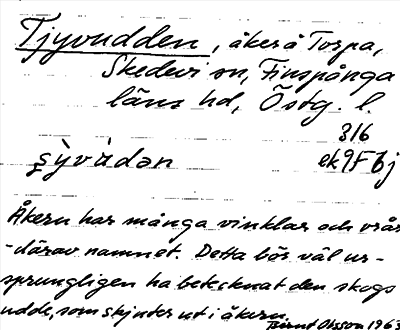 Tjyvudden, åker å Torpa,
Skedevi sn, Finspånga
läns hd, Östg. l.
316
ṣỳvùdən ek9Fbj
Åkern har många vinklar och vrår
-därav namnet. Detta bör väl ur-
sprungligen ha betecknat den skogs
udde, som skjuter ut i åkern.
Bernt Olsson 1963